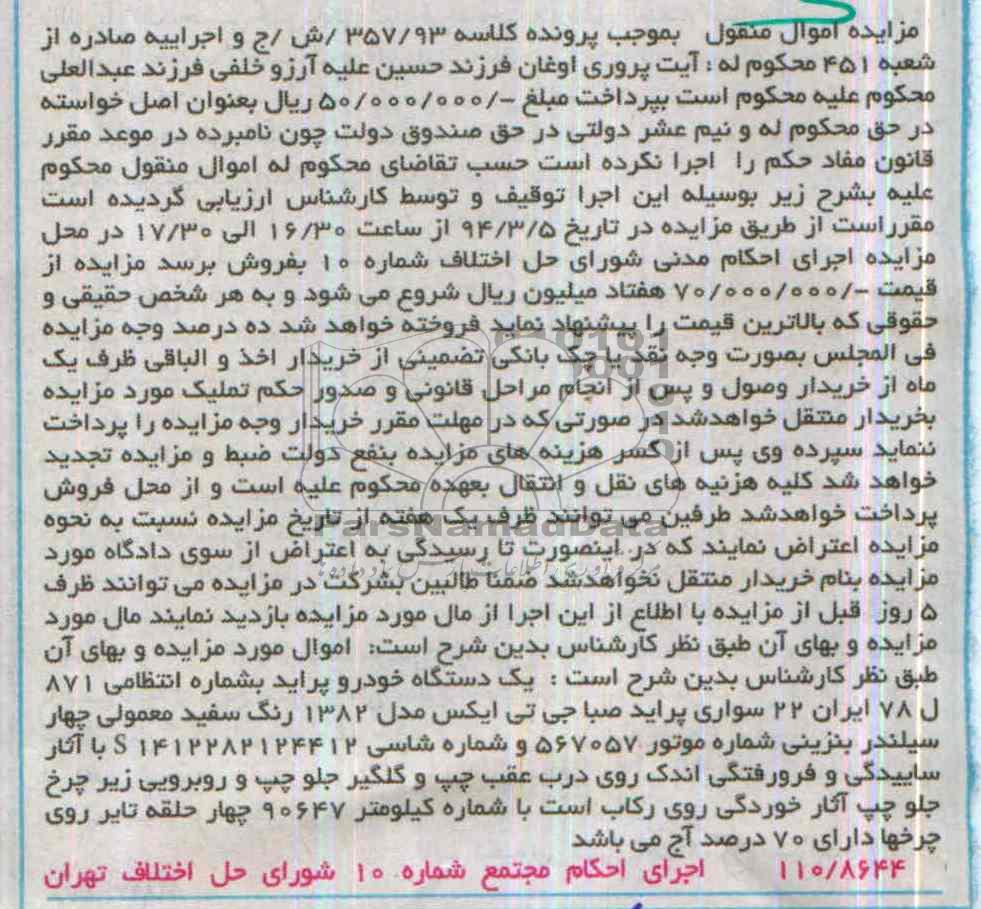 مزایده اموال منقول بموجب پرونده کلاسه ۳۵۷/۹۳ /ش /ج و اجراییه صادره از
شعبه ۴۵۱ محکوم له : آیت پروری اوغان فرزند حسین علیه آرزو خلفی فرزند عبدالعلی
محکوم علیه محکوم است بپرداخت مبلغ -/۵۰/۰۰۰/۰۰۰ ریال بعنوان اصل خواسته
در حق محکوم له و نیم عشر دولتی در حق صندوق دولت چون نامبرده در موعد مقرر
قانون مفاد حکم را اجرا نکرده است حسب تقاضای محکوم له اموال منقول محکوم
علیه بشرح زیر بوسیله این اجرا توقیف و توسط کارشناس ارزیابی گردیده است
مقرراست از طریق مزایده در تاریخ ۹۴/۳/۵ از ساعت ۱۶/۳۰ الی ۱۷/۳۰ در محل
مزایده اجرای احکام مدنی شورای حل اختلاف شماره ۱۰ بفروش برسد مزایده از
قیمت -/۷۰/۰۰۰/۰۰۰ هفتاد میلیون ریال شروع می شود و به هر شخص حقیقی و
حقوقی که بالاترین قیمت را پیشنهاد نماید فروخته خواهد شد ده درصد وجه مزایده
فی المجلس بصورت وجه نقد یا چک بانکی تضمینی از خریدار اخذ و الباقی ظرف یک
ماه از خریدار وصول و پس از انجام مراحل قانونی و صدور حکم تملیک مورد مزایده
بخریدار منتقل خواهدشد در صورتی که در مهلت مقرر خریدار وجه مزایده را پرداخت
ننماید سپرده وی پس از کسر هزینه های مزایده بنفع دولت ضبط و مزایده تجدید
خواهد شد کلیه هزنیه های نقل و انتقال بعهده محکوم علیه است و از محل فروش
پرداخت خواهدشد طرفین می توانند ظرف یک هفته از تاریخ مزایده نسبت به نحوه
ParsNamadData
مزایده اعتراض نمایند که در اینصورت تا رسیدگی به اعتراض از سوی دادگاه مورد
مزایده بنام خریدار منتقل نخواهدشد ضمنا طالبین بشرکت در مزایده می توانند ظرف
۵ روز قبل از مزایده با اطلاع از این اجرا از مال مورد مزایده بازدید نمایند مال مورد
مزایده و بهای آن طبق نظر کارشناس بدین شرح است: اموال مورد مزایده و بهای آن
طبق نظر کارشناس بدین شرح است : یک دستگاه خودرو پراید بشماره انتظامی ۸۷۱
ل ۷۸ ایران ۲۲ سواری پراید صبا جی تی ایکس مدل ۱۳۸۲ رنگ سفید معمولی چهار
سیلندر بنزینی شماره موتور ۵۶۷۰۵۷ و شماره شاسی S ۱۴۱۲۲۸۲۱۲۴۴۱۲ با آثار
ساییدگی و فرورفتگی اندک روی درب عقب چپ و گلگیر جلو چپ و روبرویی زیر چرخ
جلو چپ آثار خوردگی روی رکاب است با شماره کیلومتر ۹۰۶۴۷ چهار حلقه تایر روی
چرخها دارای ۷۰ درصد آج می باشد
۱۱۰/۸۶۴۴ اجرای احکام مجتمع شماره ۱۰ شورای حل اختلاف تهران